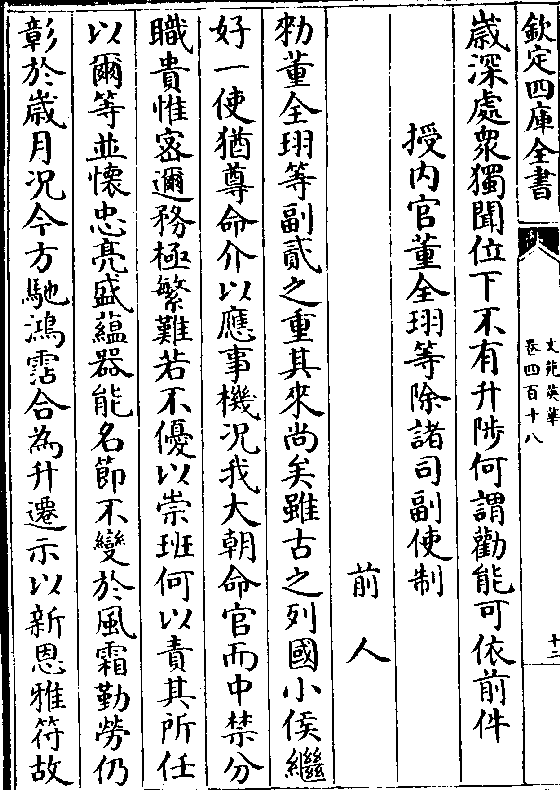 欽定四庫全書
文苑英華
卷四百十八
十二
歲深處衆獨聞位下不有升陟何謂勸能可依前件
授内官董全珝等除諸司副使制
前人
勑董全珝等副貳之重其來尚矣雖古之列國小侯繼
好一使猶尊命介以應事機况我大朝命官而中禁分
職貴惟密邇務極繁難若不優以崇班何以責其所任
以爾等並懷忠亮盛藴器能名節不變於風霜勤勞仍
彰於歲月况今方馳鴻霑合為升遷示以新恩雅符故